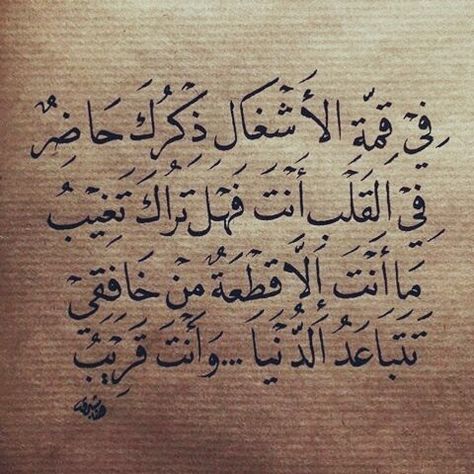 فِي قِمَّةِ الأَشْغَالِ ذِكْرُكَ حَاضِرٌ
فِي القَلْبِ أَنْتَ فَهَلْ تَرَاكَ تَغِيْبُ
مَا أَنْتَ إِلَّا قِطْعَةٌ مِنْ خَافِقِيْ
تَتَبَاعَدُ الدُّنْيَا ... وَأَنْتَ قَرِيْبُ